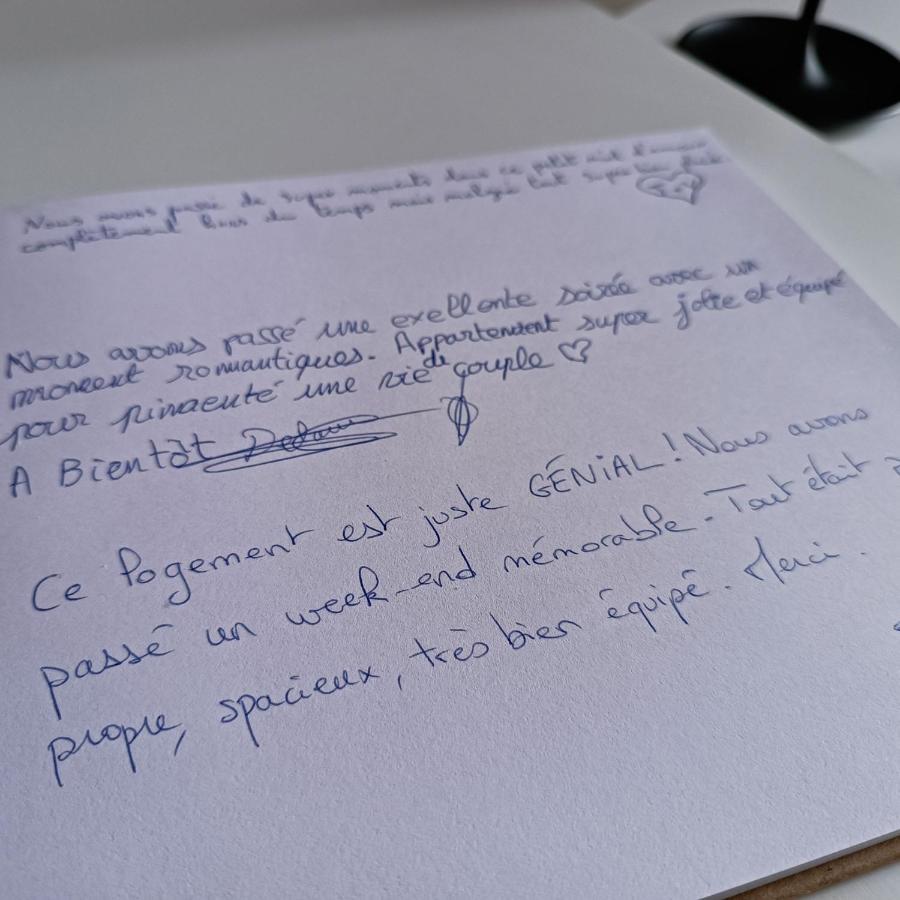 Nous avons passé de super moments dans ce petit nid d'amour
complètement hors du temps mais malgré tout super bien placé
Nous avons passé une exellente soirée avec un
moment romantiques. Appartement super jolie et équipé
pour pimenté une vie de couple ♡
A Bientôt
Ce logement est juste GÉNIAL ! Nous avons
passé un week-end mémorable. Tout était
propre, spacieux, très bien équipé. Merci.